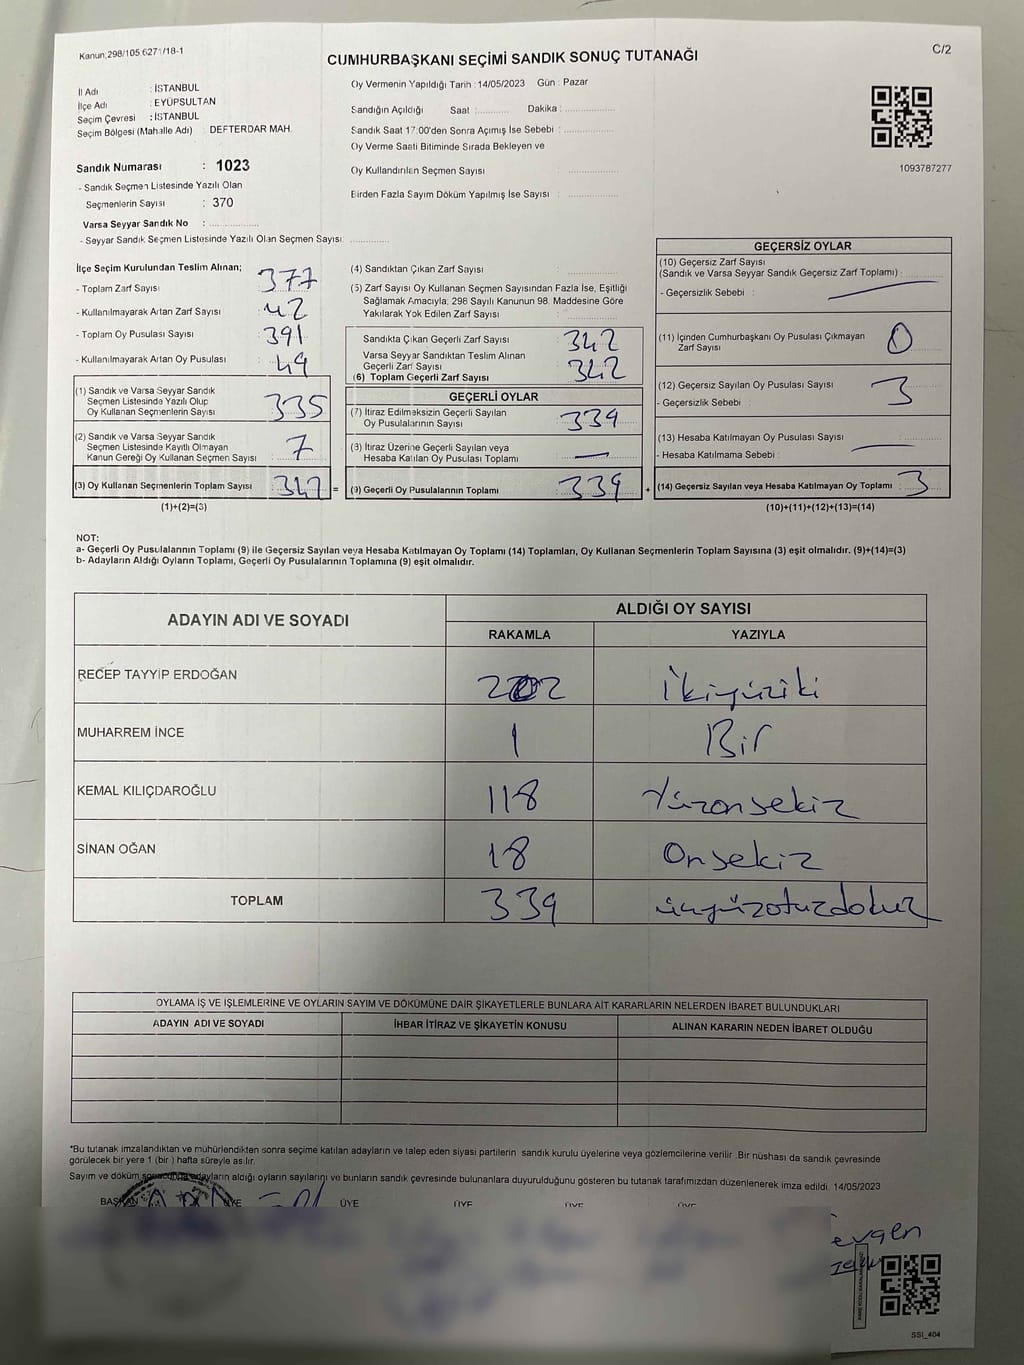 Kanun:298/105 6271/18-1
C/2
CUMHURBAŞKANI SEÇİMİ SANDIK SONUÇ TUTANAĞI
İl Adı : İSTANBUL
İlçe Adı : EYÜPSULTAN
Seçim Çevresi : İSTANBUL
Seçim Bölgesi (Mahalle Adı) DEFTERDAR MAH.
Sandık Numarası : 1023
- Sandık Seçmen Listesinde Yazılı Olan
Seçmenlerin Sayısı : 370
Varsa Seyyar Sandık No :
- Seyyar Sandık Seçmen Listesinde Yazılı Olan Seçmen Sayısı:
Oy Vermenin Yapıldığı Tarih :14/05/2023 Gün : Pazar
Sandığın Açıldığı Saat : Dakika :
Sandık Saat 17:00'den Sonra Açımış İse Sebebi :
Oy Verme Saati Bitiminde Sırada Bekleyen ve
Oy Kullandırılan Seçmen Sayısı :
Birden Fazla Sayım Döküm Yapılmış İse Sayısı :
1093787277
İlçe Seçim Kurulundan Teslim Alınan;
- Toplam Zarf Sayısı : 377
- Kullanılmayarak Artan Zarf Sayısı : 42
- Toplam Oy Pusulası Sayısı : 391
- Kullanılmayarak Artan Oy Pusulası : 49
(1) Sandık ve Varsa Seyyar Sandık
Seçmen Listesinde Yazılı Olup
Oy Kullanan Seçmenlerin Sayısı : 335
(2) Sandık ve Varsa Seyyar Sandık
Seçmen Listesinde Kayıtlı Olmayan
Kanun Gereği Oy Kullanan Seçmen Sayısı : 7
(3) Oy Kullanan Seçmenlerin Toplam Sayısı : 342 =
(1)+(2)=(3)
(4) Sandıktan Çıkan Zarf Sayısı :
(5) Zarf Sayısı Oy Kullanan Seçmen Sayısından Fazla İse, Eşitliği
Sağlamak Amacıyla, 298 Sayılı Kanunun 98. Maddesine Göre
Yakılarak Yok Edilen Zarf Sayısı :
Sandıkta Çıkan Geçerli Zarf Sayısı : 342
Varsa Seyyar Sandıktan Teslim Alınan
Geçerli Zarf Sayısı : 342
(6) Toplam Geçerli Zarf Sayısı
GEÇERLİ OYLAR
(7) İtiraz Edilmeksizin Geçerli Sayılan
Oy Pusulalarının Sayısı : 339
(8) İtiraz Üzerine Geçerli Sayılan veya
Hesaba Katılan Oy Pusulası Toplamı : —
(9) Geçerli Oy Pusulalarının Toplamı : 339 +
GEÇERSİZ OYLAR
(10) Geçersiz Zarf Sayısı
(Sandık ve Varsa Seyyar Sandık Geçersiz Zarf Toplamı) :
- Geçersizlik Sebebi : —
(11) İçinden Cumhurbaşkanı Oy Pusulası Çıkmayan
Zarf Sayısı : 0
(12) Geçersiz Sayılan Oy Pusulası Sayısı : 3
- Geçersizlik Sebebi :
(13) Hesaba Katılmayan Oy Pusulası Sayısı : —
- Hesaba Katılmama Sebebi :
(14) Geçersiz Sayılan veya Hesaba Katılmayan Oy Toplamı : 3
(10)+(11)+(12)+(13)=(14)
NOT:
a- Geçerli Oy Pusulalarının Toplamı (9) ile Geçersiz Sayılan veya Hesaba Katılmayan Oy Toplamı (14) Toplamları, Oy Kullanan Seçmenlerin Toplam Sayısına (3) eşit olmalıdır. (9)+(14)=(3)
b- Adayların Aldığı Oyların Toplamı, Geçerli Oy Pusulalarının Toplamına (9) eşit olmalıdır.
ADAYIN ADI VE SOYADI ALDIĞI OY SAYISI
RAKAMLA YAZIYLA
RECEP TAYYİP ERDOĞAN 202 İkiyüziki
MUHARREM İNCE 1 Bir
KEMAL KILIÇDAROĞLU 118 Yüzonsekiz
SİNAN OĞAN 18 Onsekiz
TOPLAM 339 üçyüzotuzdokuz
OYLAMA İŞ VE İŞLEMLERİNE VE OYLARIN SAYIM VE DÖKÜMÜNE DAİR ŞİKAYETLERLE BUNLARA AİT KARARLARIN NELERDEN İBARET BULUNDUKLARI
ADAYIN ADI VE SOYADI İHBAR İTİRAZ VE ŞİKAYETİN KONUSU ALINAN KARARIN NEDEN İBARET OLDUĞU
*Bu tutanak imzalandıktan ve mühürlendikten sonra seçime katılan adayların ve talep eden siyasi partilerin sandık kurulu üyelerine veya gözlemcilerine verilir. Bir nüshası da sandık çevresinde
görülecek bir yere 1 (bir ) hafta süreyle asılır.
Sayım ve döküm sonucunda adayların aldığı oyların sayılarını ve bunların sandık çevresinde bulunanlara duyurulduğunu gösteren bu tutanak tarafımızdan düzenlenerek imza edildi. 14/05/2023
BAŞKAN ÜYE ÜYE ÜYE ÜYE ÜYE
SSI_404